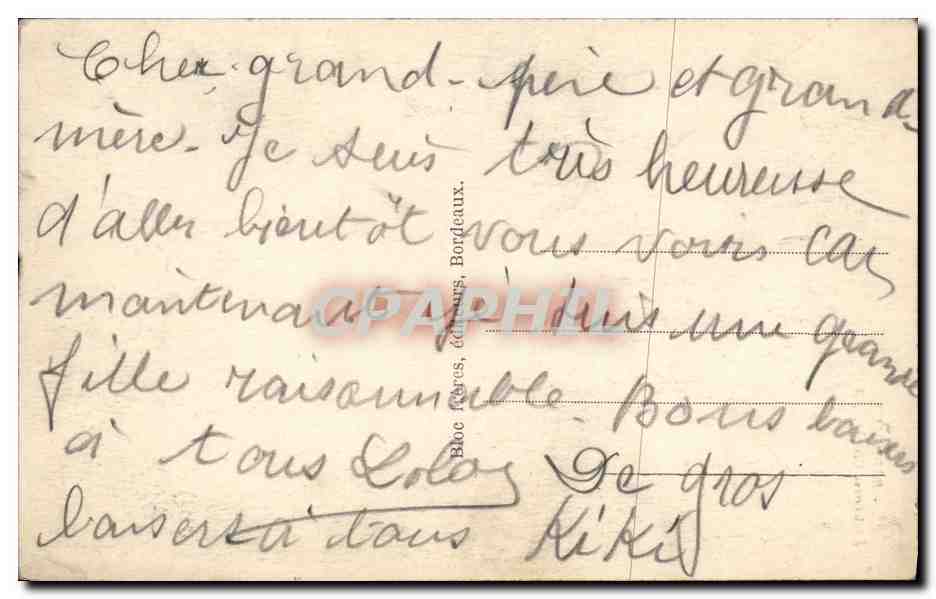 Cher grand-père et grand-
mère. Je suis très heureuse
d'aller bientôt vous voir car
maintenant je suis une grande
fille raisonnable. Bons baisers
à tous Lolo
De gros
baisers à tous KiKi
Bloc frères, éditeurs, Bordeaux.
CPAPHIL